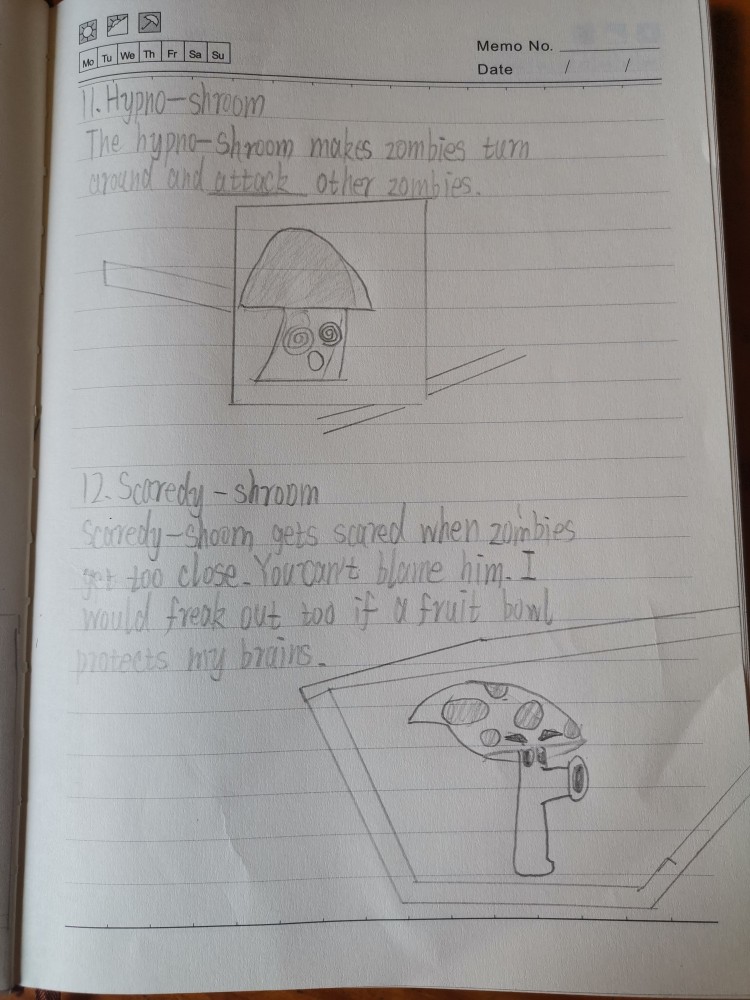 Mo Tu We Th Fr Sa Su
Memo No.
Date / /
11. Hypno-shroom
The hypno-shroom makes zombies turn
around and attack other zombies.
12. Scaredy-shroom
Scaredy-shoom gets scared when zombies
get too close. You can't blame him. I
would freak out too if a fruit bowl
protects my brains.